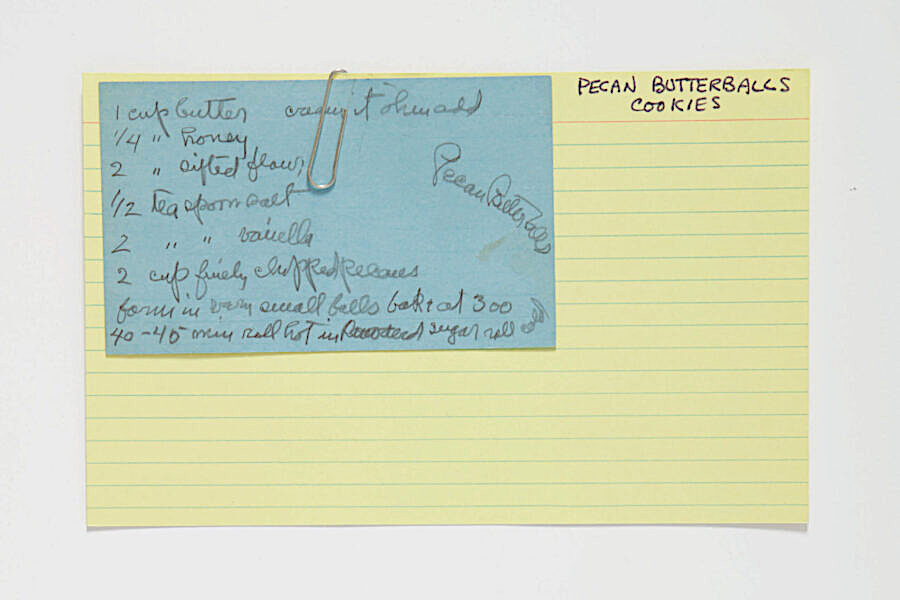 PECAN BUTTERBALLS
COOKIES
1 cup butter cream it then add
1/4 " honey
2 " sifted flour
1/2 teaspoon salt
2 " " vanilla
2 cup finely chopped pecans
form in very small balls bake at 300
40-45 min roll hot in sugar roll
Pecan Butterballs